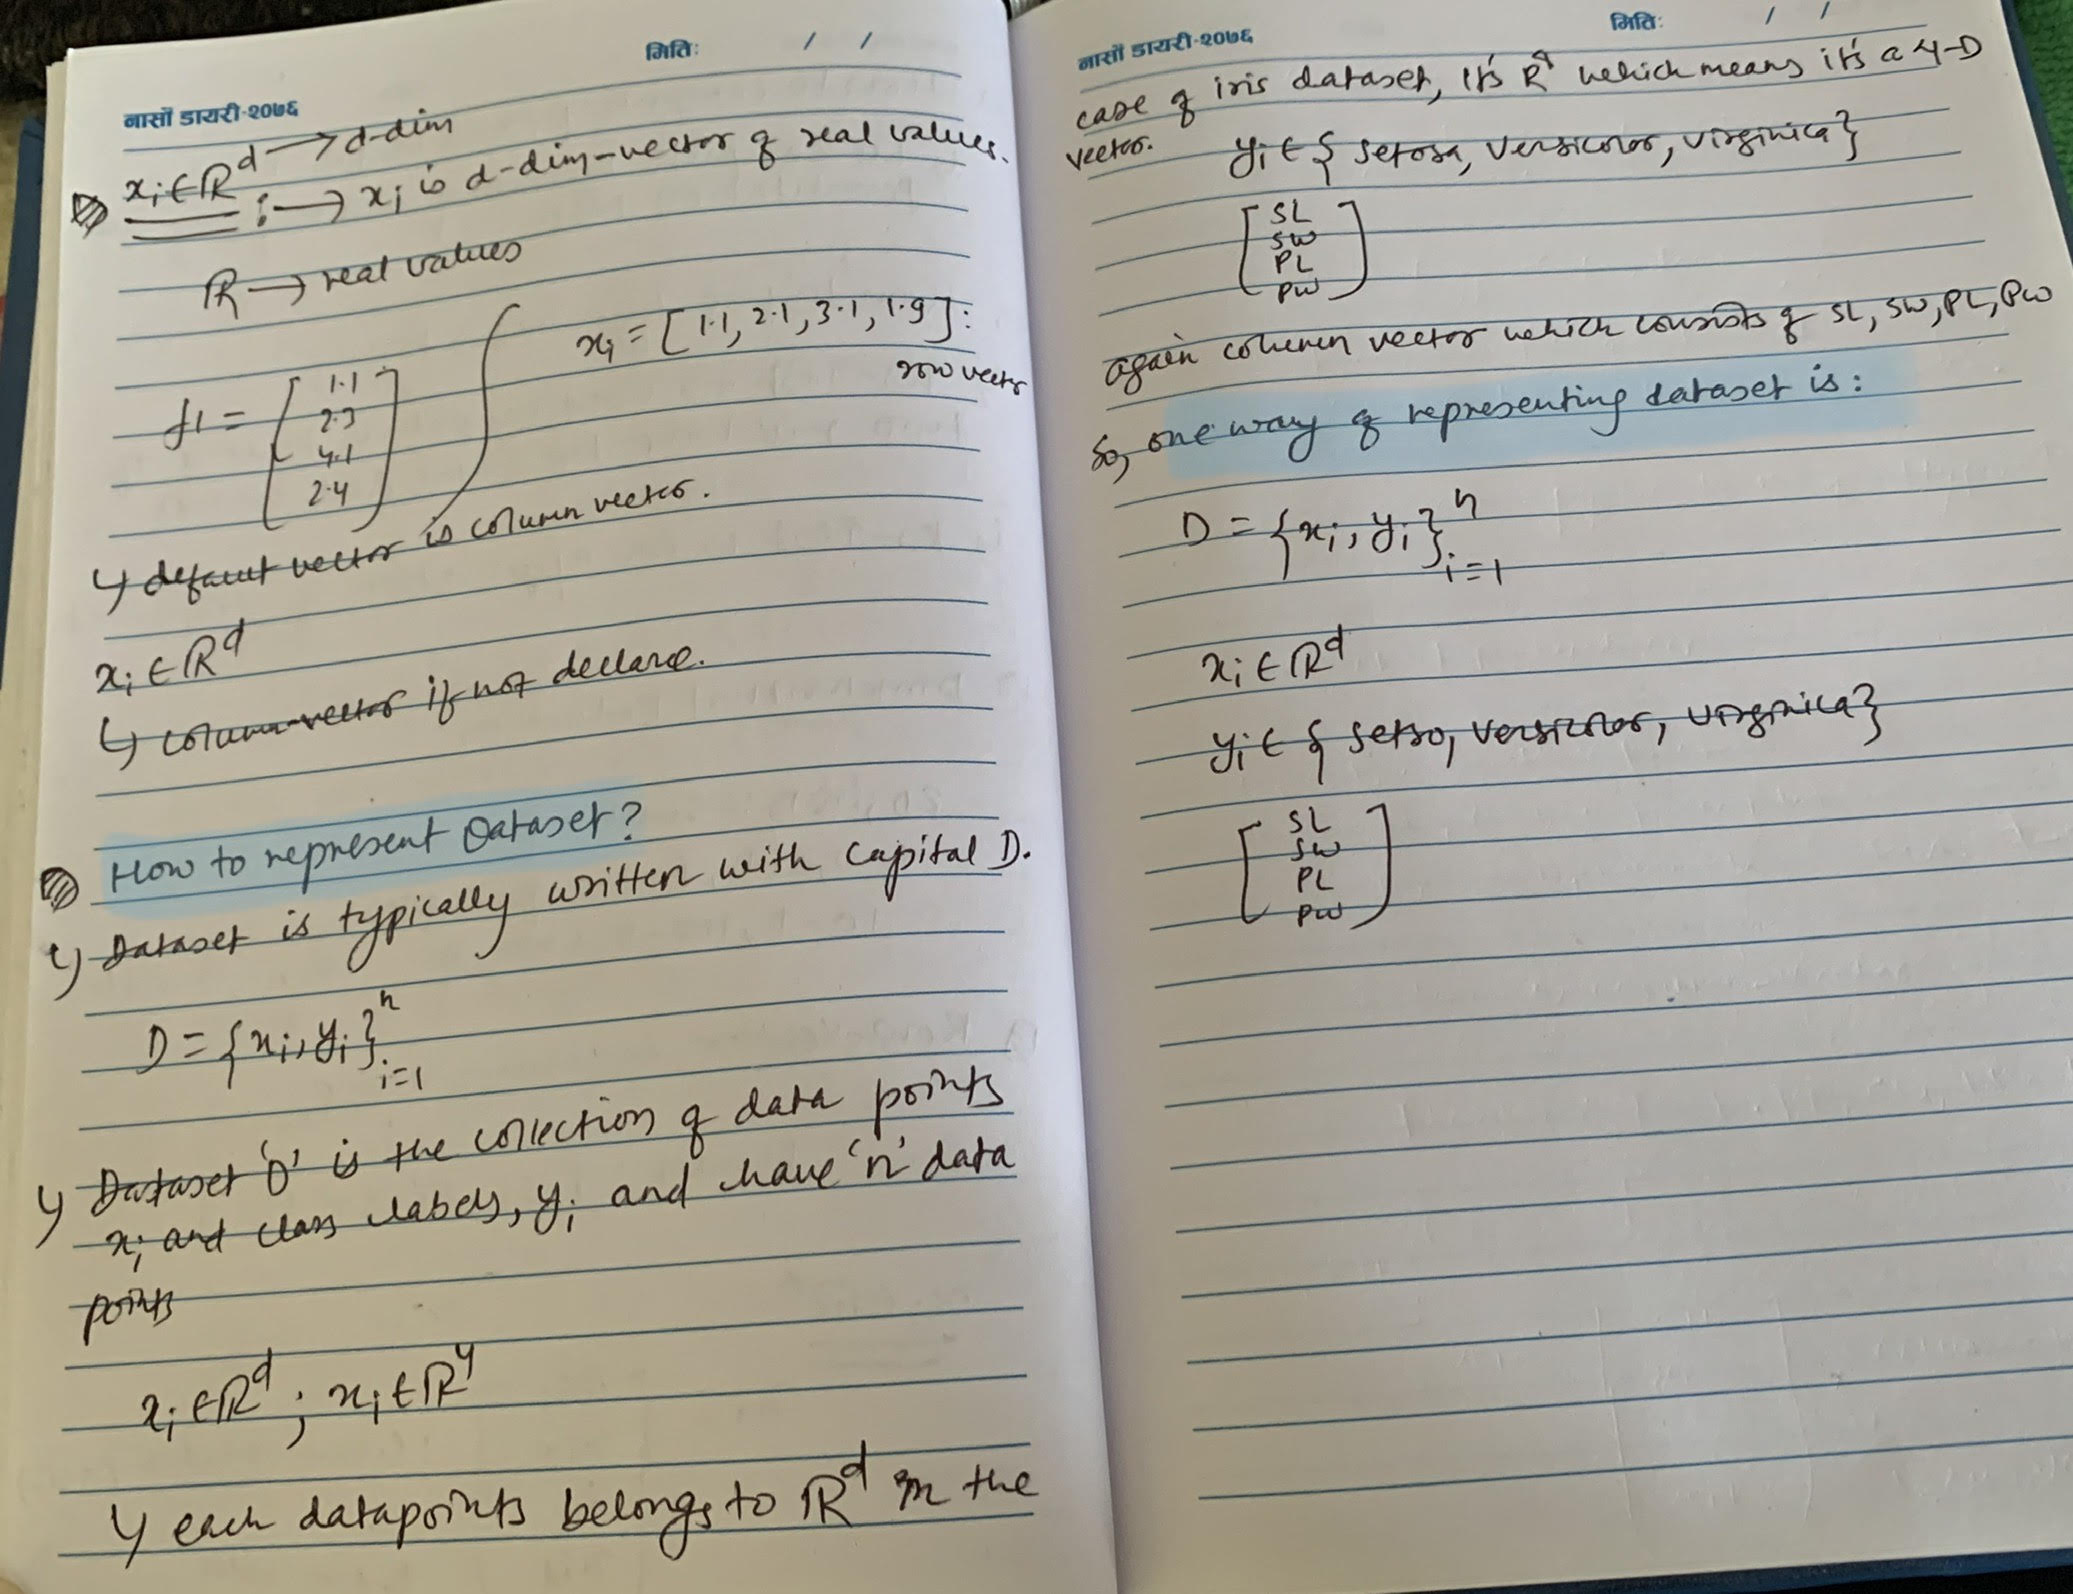 मिति: / /
नासों डायरी-२०७६
xᵢ ∈ ℝᵈ → d-dim
: → xᵢ is d-dim-vector of real values.
ℝ → real values
xᵢ = [1.1, 2.1, 3.1, 1.9]:
row vector
f1 = [1.1
2.3
4.1
2.4]
↳ default vector is column vector.
xᵢ ∈ ℝᵈ
↳ column-vector if not declare.
How to represent Dataset?
↳ Dataset is typically written with capital D.
D = {xᵢ, yᵢ}ⁿᵢ₌₁
↳ Dataset 'D' is the collection of data points
xᵢ and class labels, yᵢ and have 'n' data
points
xᵢ ∈ ℝᵈ ; xᵢ ∈ ℝ⁴
↳ each datapoints belongs to ℝᵈ in the
मिति: / /
नासों डायरी-२०७६
case of iris dataset, It's R⁴ which means it's a 4-D
vector.
yᵢ ∈ { setosa, versicolor, virginica}
[SL
SW
PL
PW]
again column vector which consists of SL, SW, PL, PW
So, one way of representing dataset is:
D = {xᵢ, yᵢ}ⁿᵢ₌₁
xᵢ ∈ ℝᵈ
yᵢ ∈ { setso, versicolor, virginica}
[SL
SW
PL
PW]